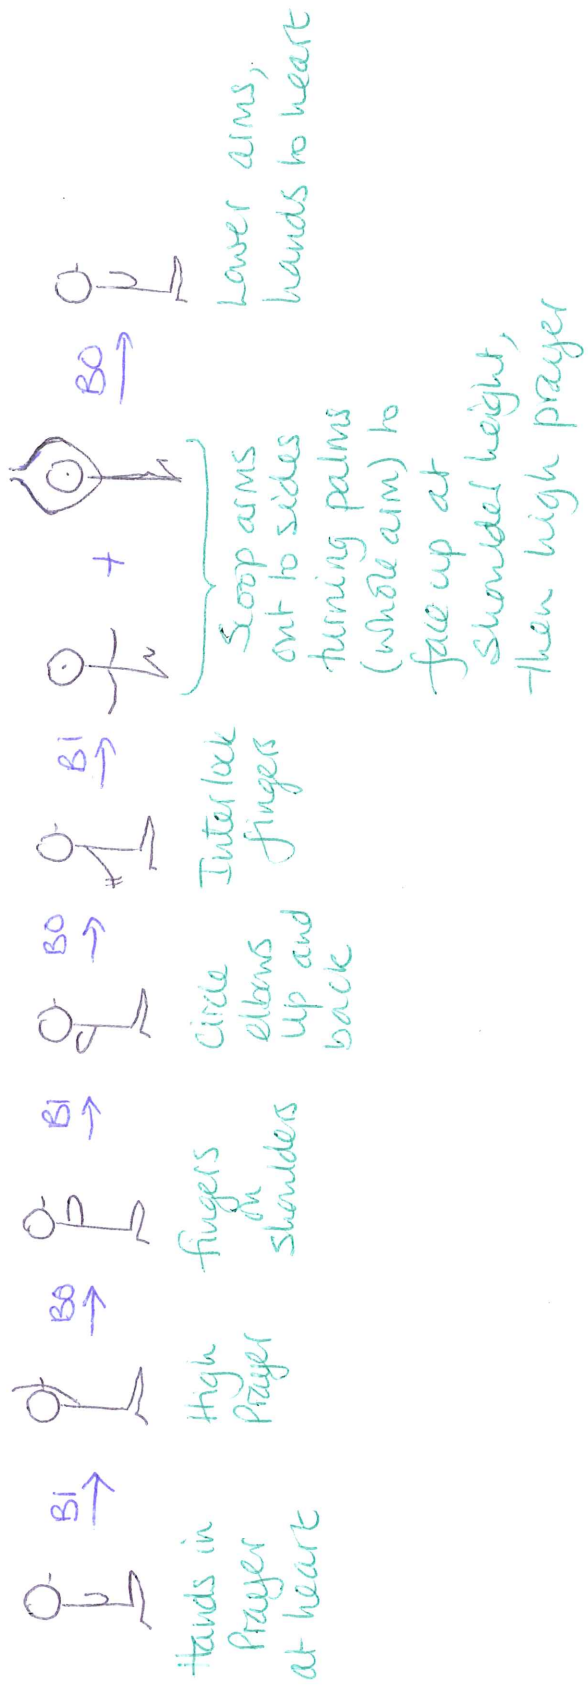 Hands in
Prayer
at heart
BI
High
Prayer
BO
fingers
on
shoulders
BI
Circle
elbows
up and
back
BO
Interlock
fingers
BI
+
Scoop arms
out to sides
turning palms
(whole arm) to
face up at
shoulder height,
then high prayer
BO
Lower arms,
hands to heart